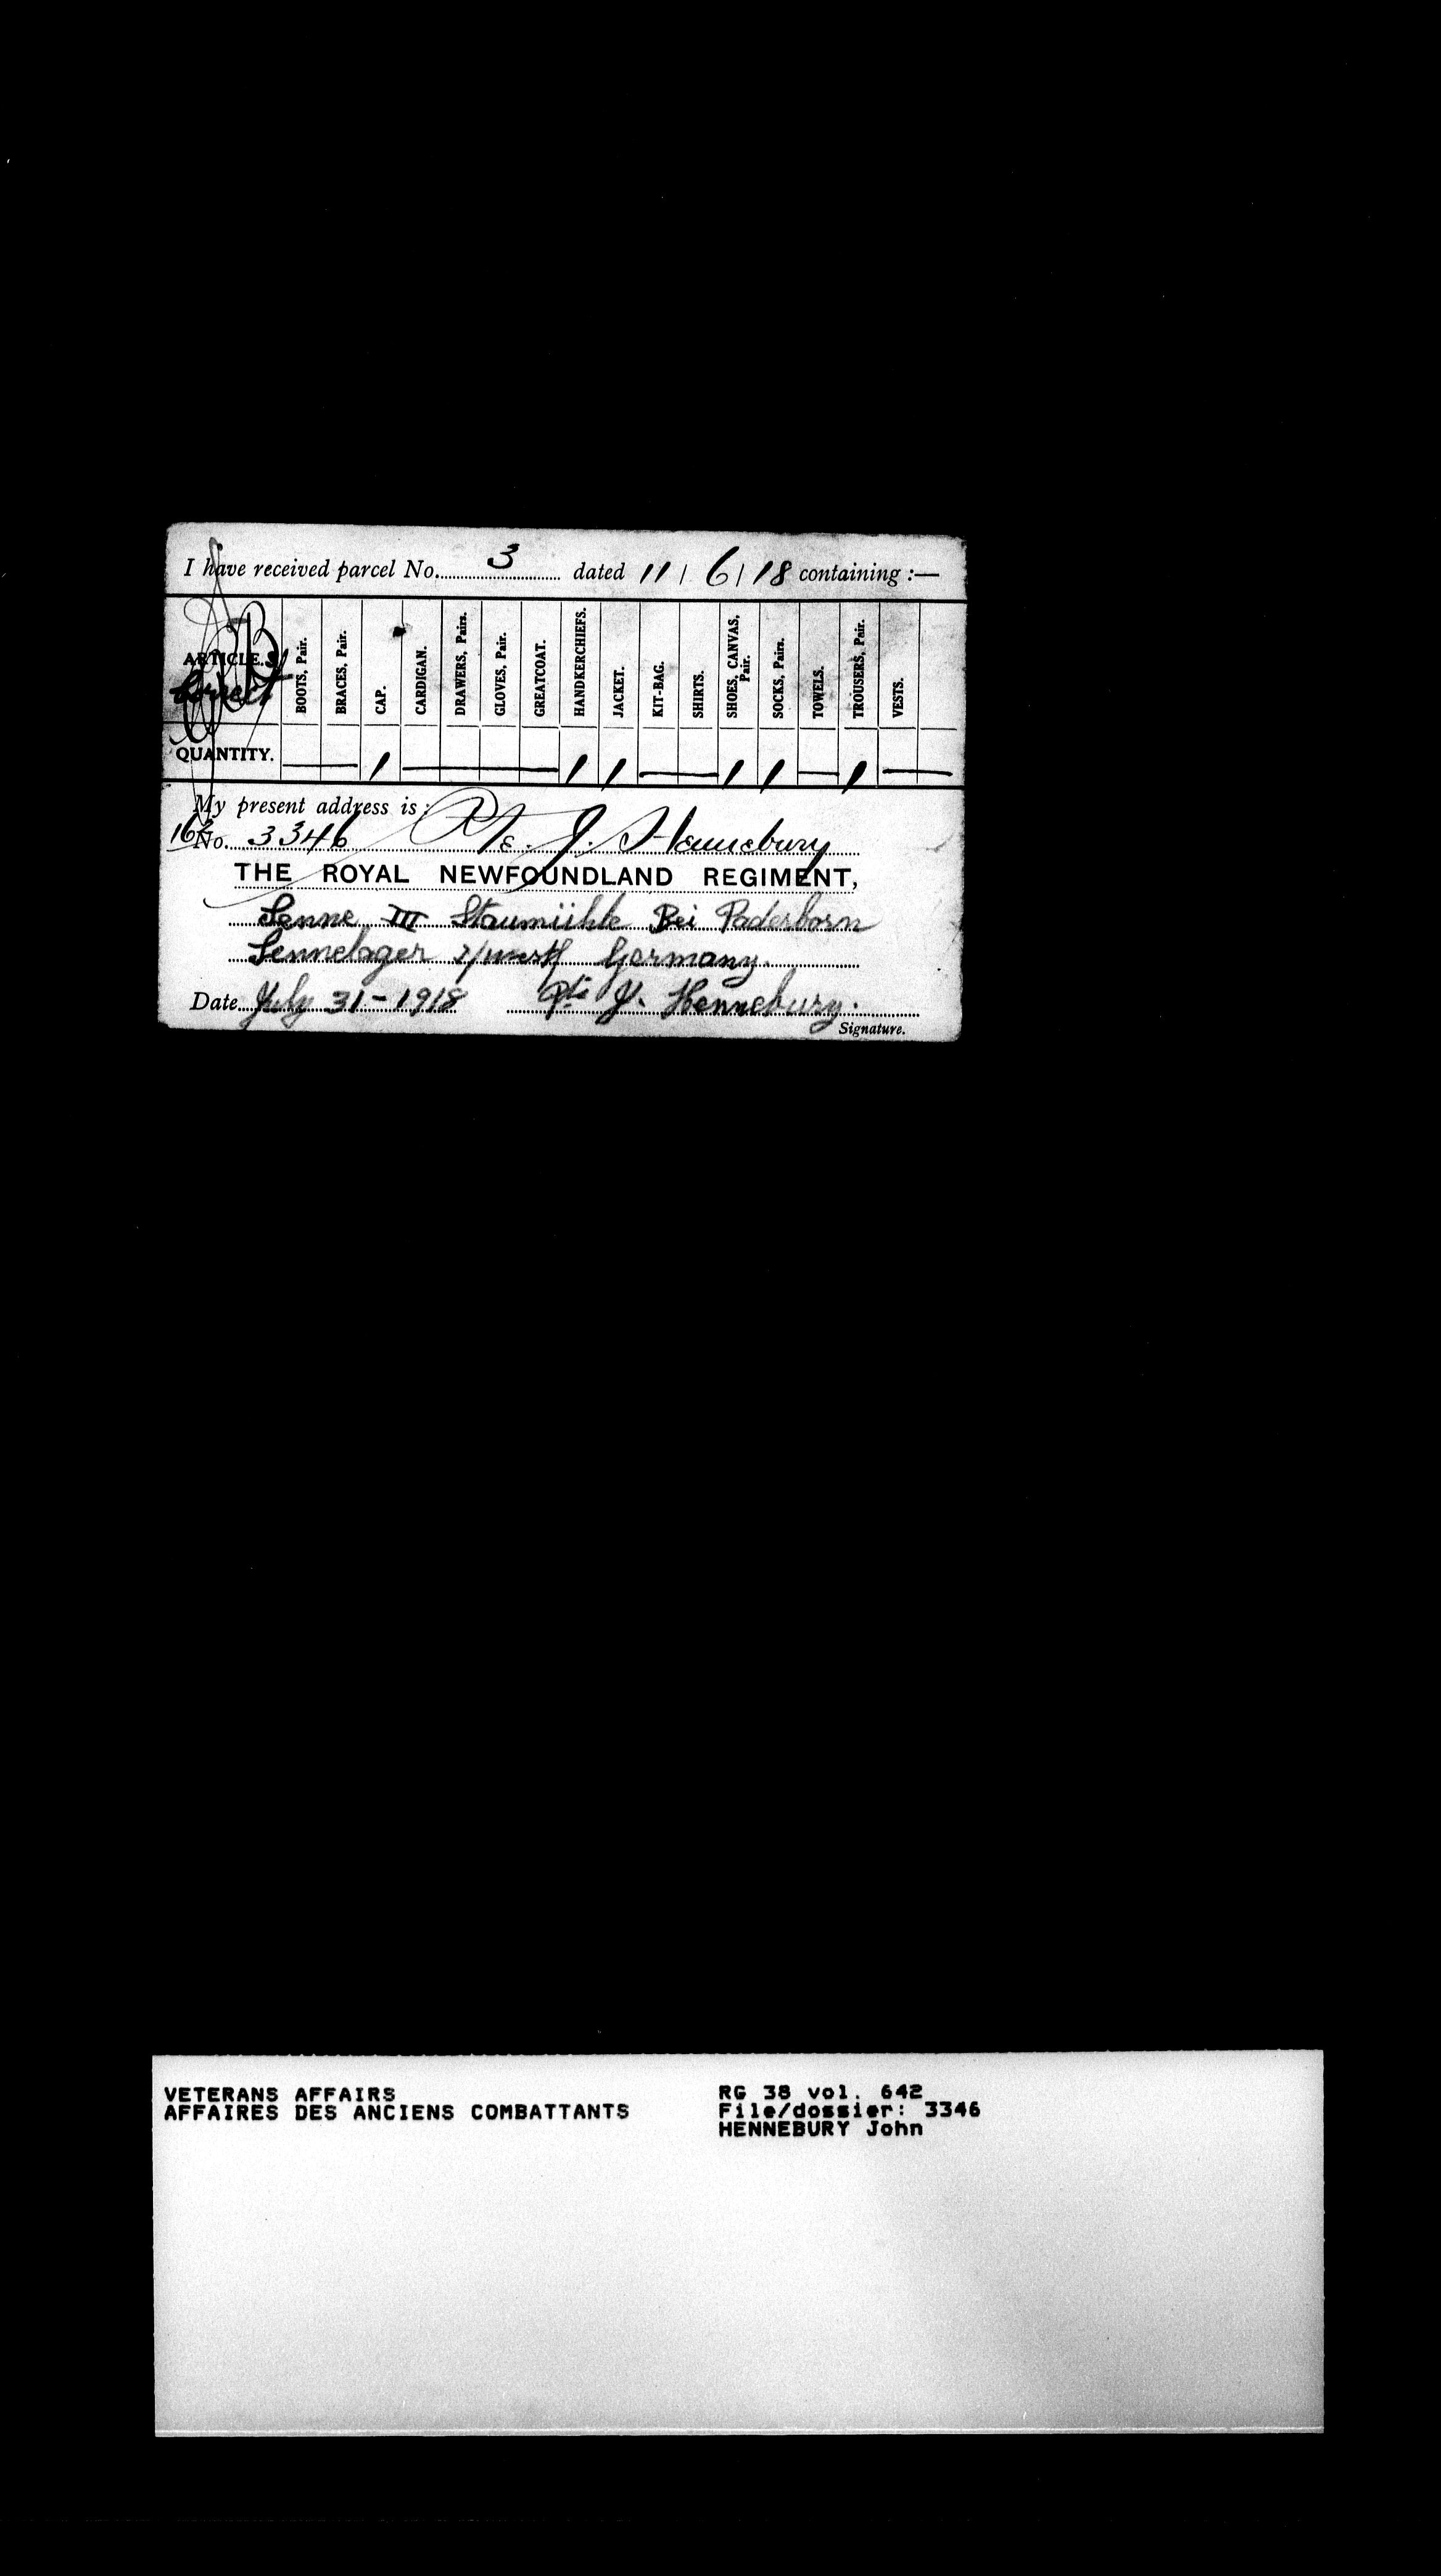 I have received parcel No. 3 dated 11/6/18 containing :—
ARTICLES
BOOTS, Pair.
BRACES, Pair.
CAP.
CARDIGAN.
DRAWERS, Pairs.
GLOVES, Pair.
GREATCOAT.
HANDKERCHIEFS.
JACKET.
KIT-BAG.
SHIRTS.
SHOES, CANVAS, Pair.
SOCKS, Pairs.
TOWELS.
TROUSERS, Pair.
VESTS.
Correct
QUANTITY. — 1 — 1 1 — 1 1 — 1 —
My present address is :
162
No. 3346 Pte. J. Hennebury
THE ROYAL NEWFOUNDLAND REGIMENT,
Senne III Staumühle Bei Paderborn
Sennelager Germany.
Date July 31 - 1918 Pte J. Hennebury.
Signature.
VETERANS AFFAIRS
AFFAIRES DES ANCIENS COMBATTANTS
RG 38 vol. 642
File/dossier: 3346
HENNEBURY John